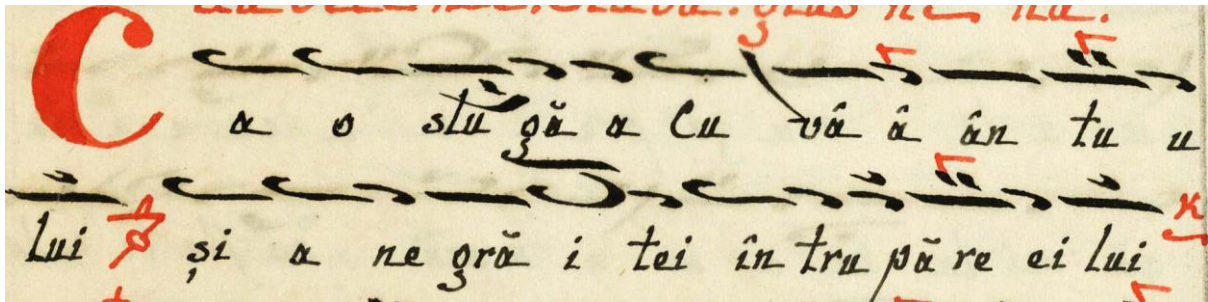 Ca o slugă a Cu vâ â ân tu u
lui și a ne gră i tei în tru pă re ei lui